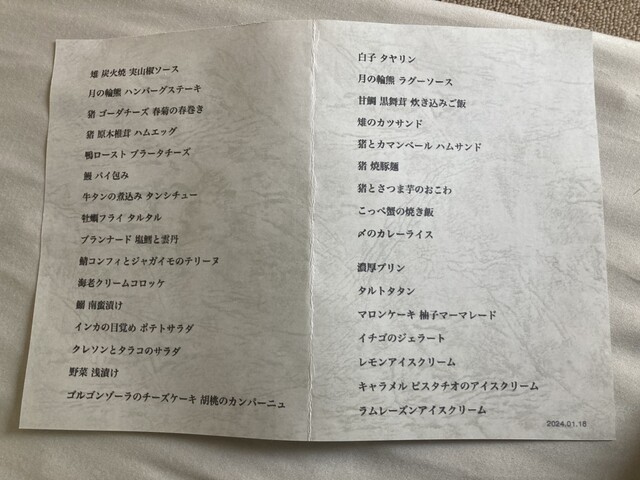 雉 炭火焼 実山椒ソース
月の輪熊 ハンバーグステーキ
猪 ゴーダチーズ 春菊の春巻き
猪 原木椎茸 ハムエッグ
鴨ロースト ブラータチーズ
鰻 パイ包み
牛タンの煮込み タンシチュー
牡蠣フライ タルタル
ブランナード 塩鱈と雲丹
鯖コンフィとジャガイモのテリーヌ
海老クリームコロッケ
鰯 南蛮漬け
インカの目覚め ポテトサラダ
クレソンとタラコのサラダ
野菜 浅漬け
ゴルゴンゾーラのチーズケーキ 胡桃のカンパーニュ
白子 タヤリン
月の輪熊 ラグーソース
甘鯛 黒舞茸 炊き込みご飯
雉のカツサンド
猪とカマンベール ハムサンド
猪 焼豚麺
猪とさつま芋のおこわ
こっぺ蟹の焼き飯
〆のカレーライス
濃厚プリン
タルトタタン
マロンケーキ 柚子マーマレード
イチゴのジェラート
レモンアイスクリーム
キャラメル ピスタチオのアイスクリーム
ラムレーズンアイスクリーム
2024.01.18